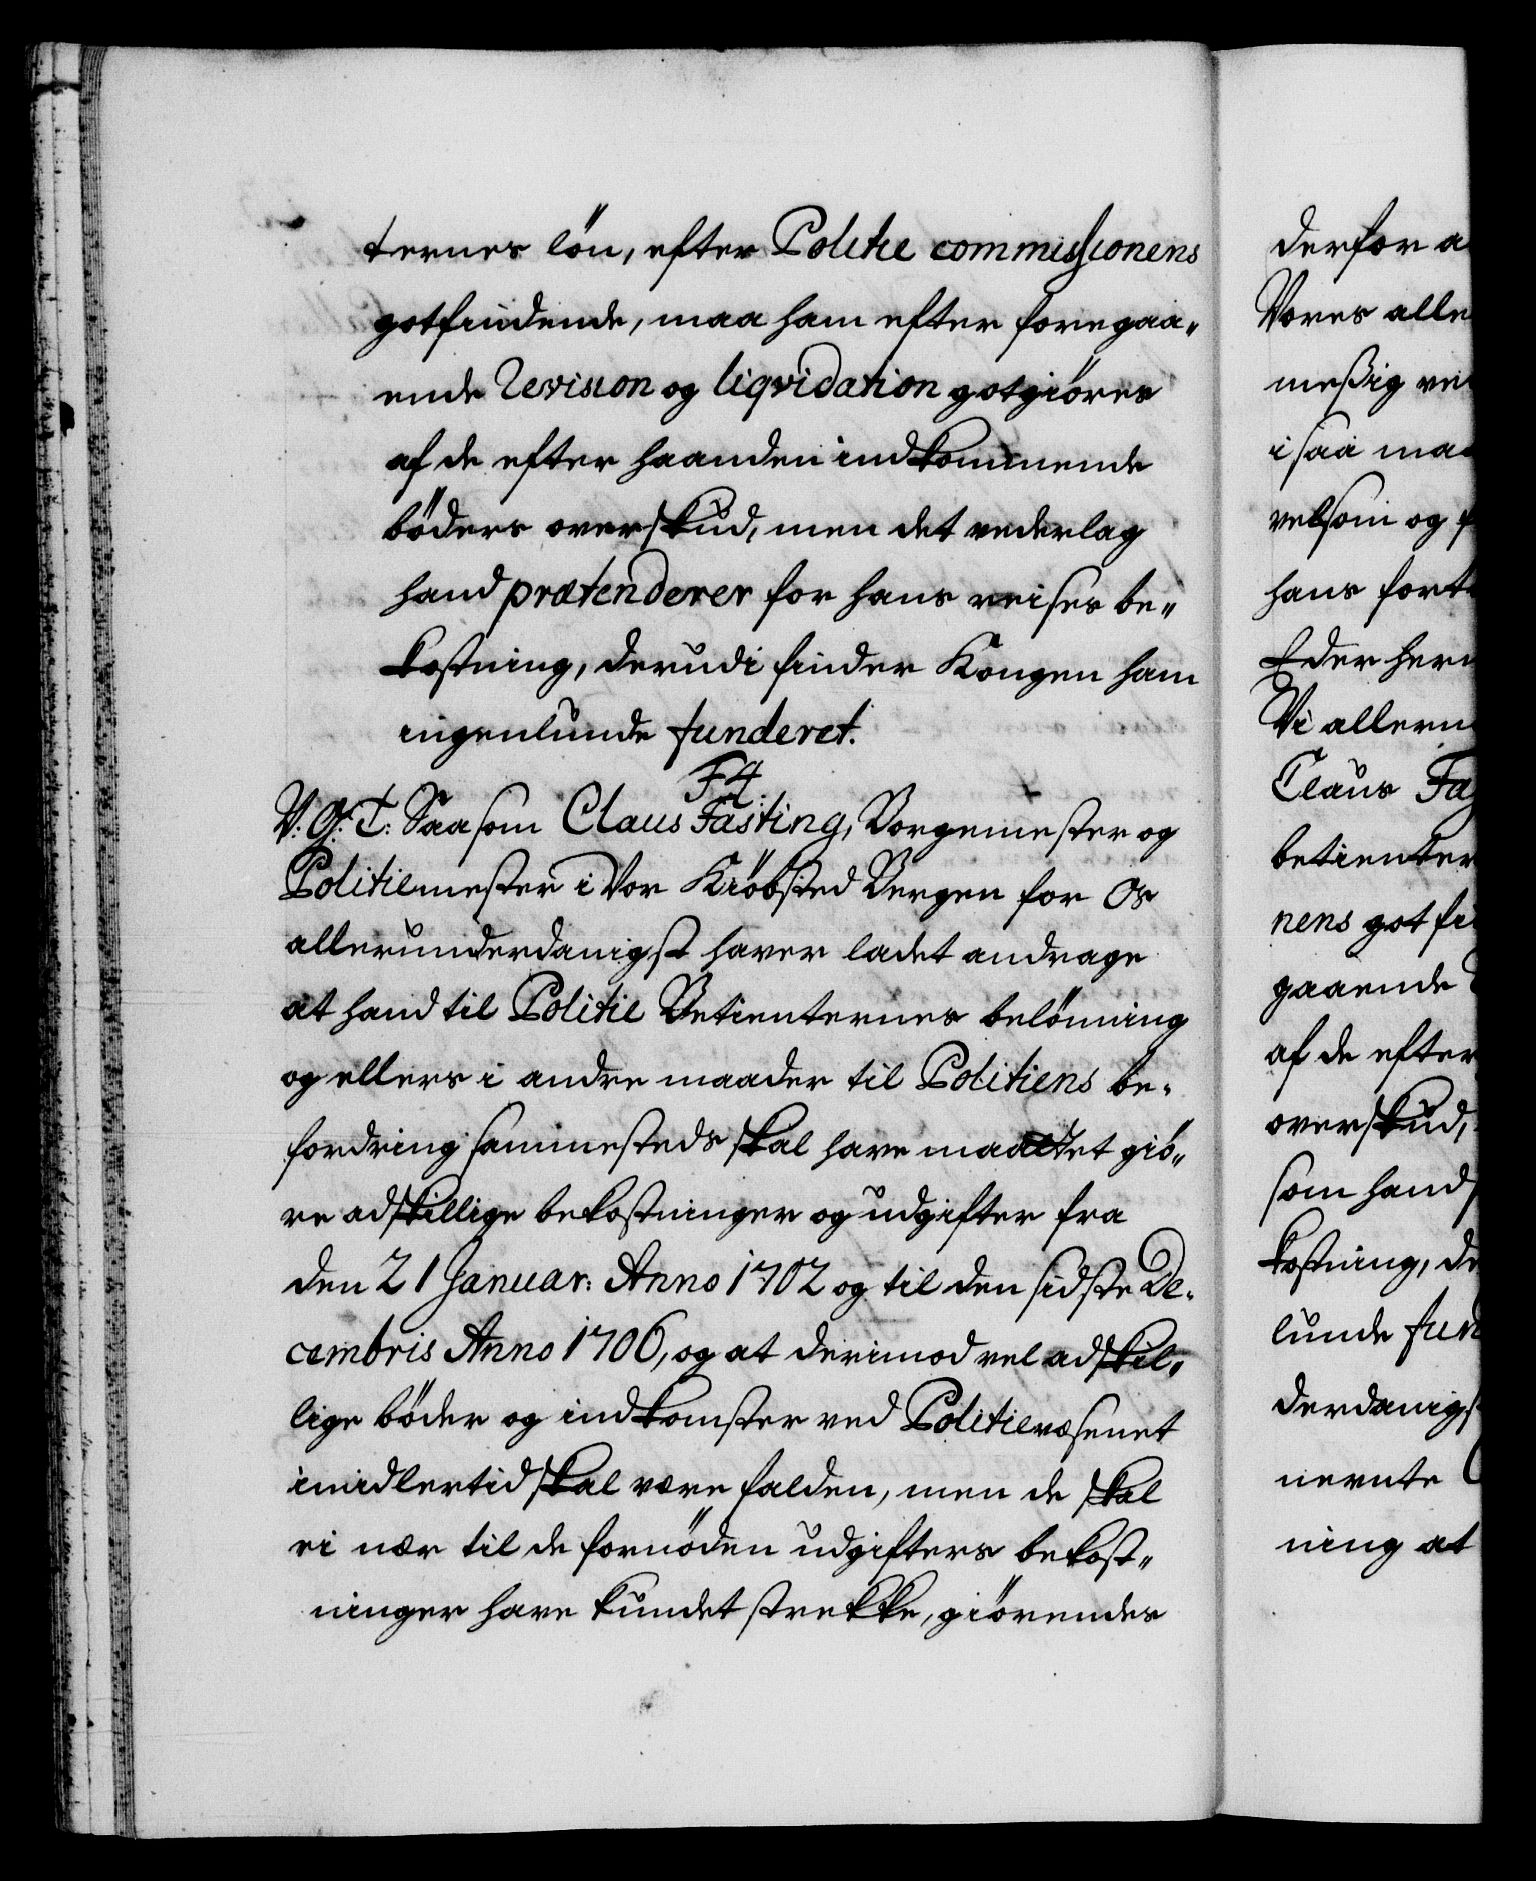 ternes lön, efter Politie commissionens
gotfindende, maa ham efter foregaa„
ende Revision og liqvidation gotgiöres
af de efter haanden indkommende
böders overskud, men det vederlag
hand prætenderer for hans reises be„
kostning, derudi finder Kongen ham
ingenlunde funderet.
F4.
V: G: T: Saasom Claus Fasting, Borgemester og
Politiemester i Vor Kiöbsted Bergen for Os
allerunderdanigst haver ladet andrage
at hand til Politie Betienternes belönning
og ellers i andre maader til Politiens be„
fordring sammesteds skal have maattet giö„
re adskillige bekostninger og udgifter fra
den 21 Januar: Anno 1702 og til den sidste De„
cembris Anno 1706, og at derimod vel adskil„
lige böder og indkomster ved Politievæsenet
imidlertid skal være falden, men de skal
ei nær til de fornöden udgifters bekost„
ninger have kundet strekke, giörendes
derfor a
Vores alle
meßig ve
i saa maa
velsom og f
hans fort
Eder her
Vi allern
Claus Fa
betienter
nens gotfi
gaaende
af de efter
overskud,
som hand
kostning, de
lunde fun
derdanigs
nernte
ning at